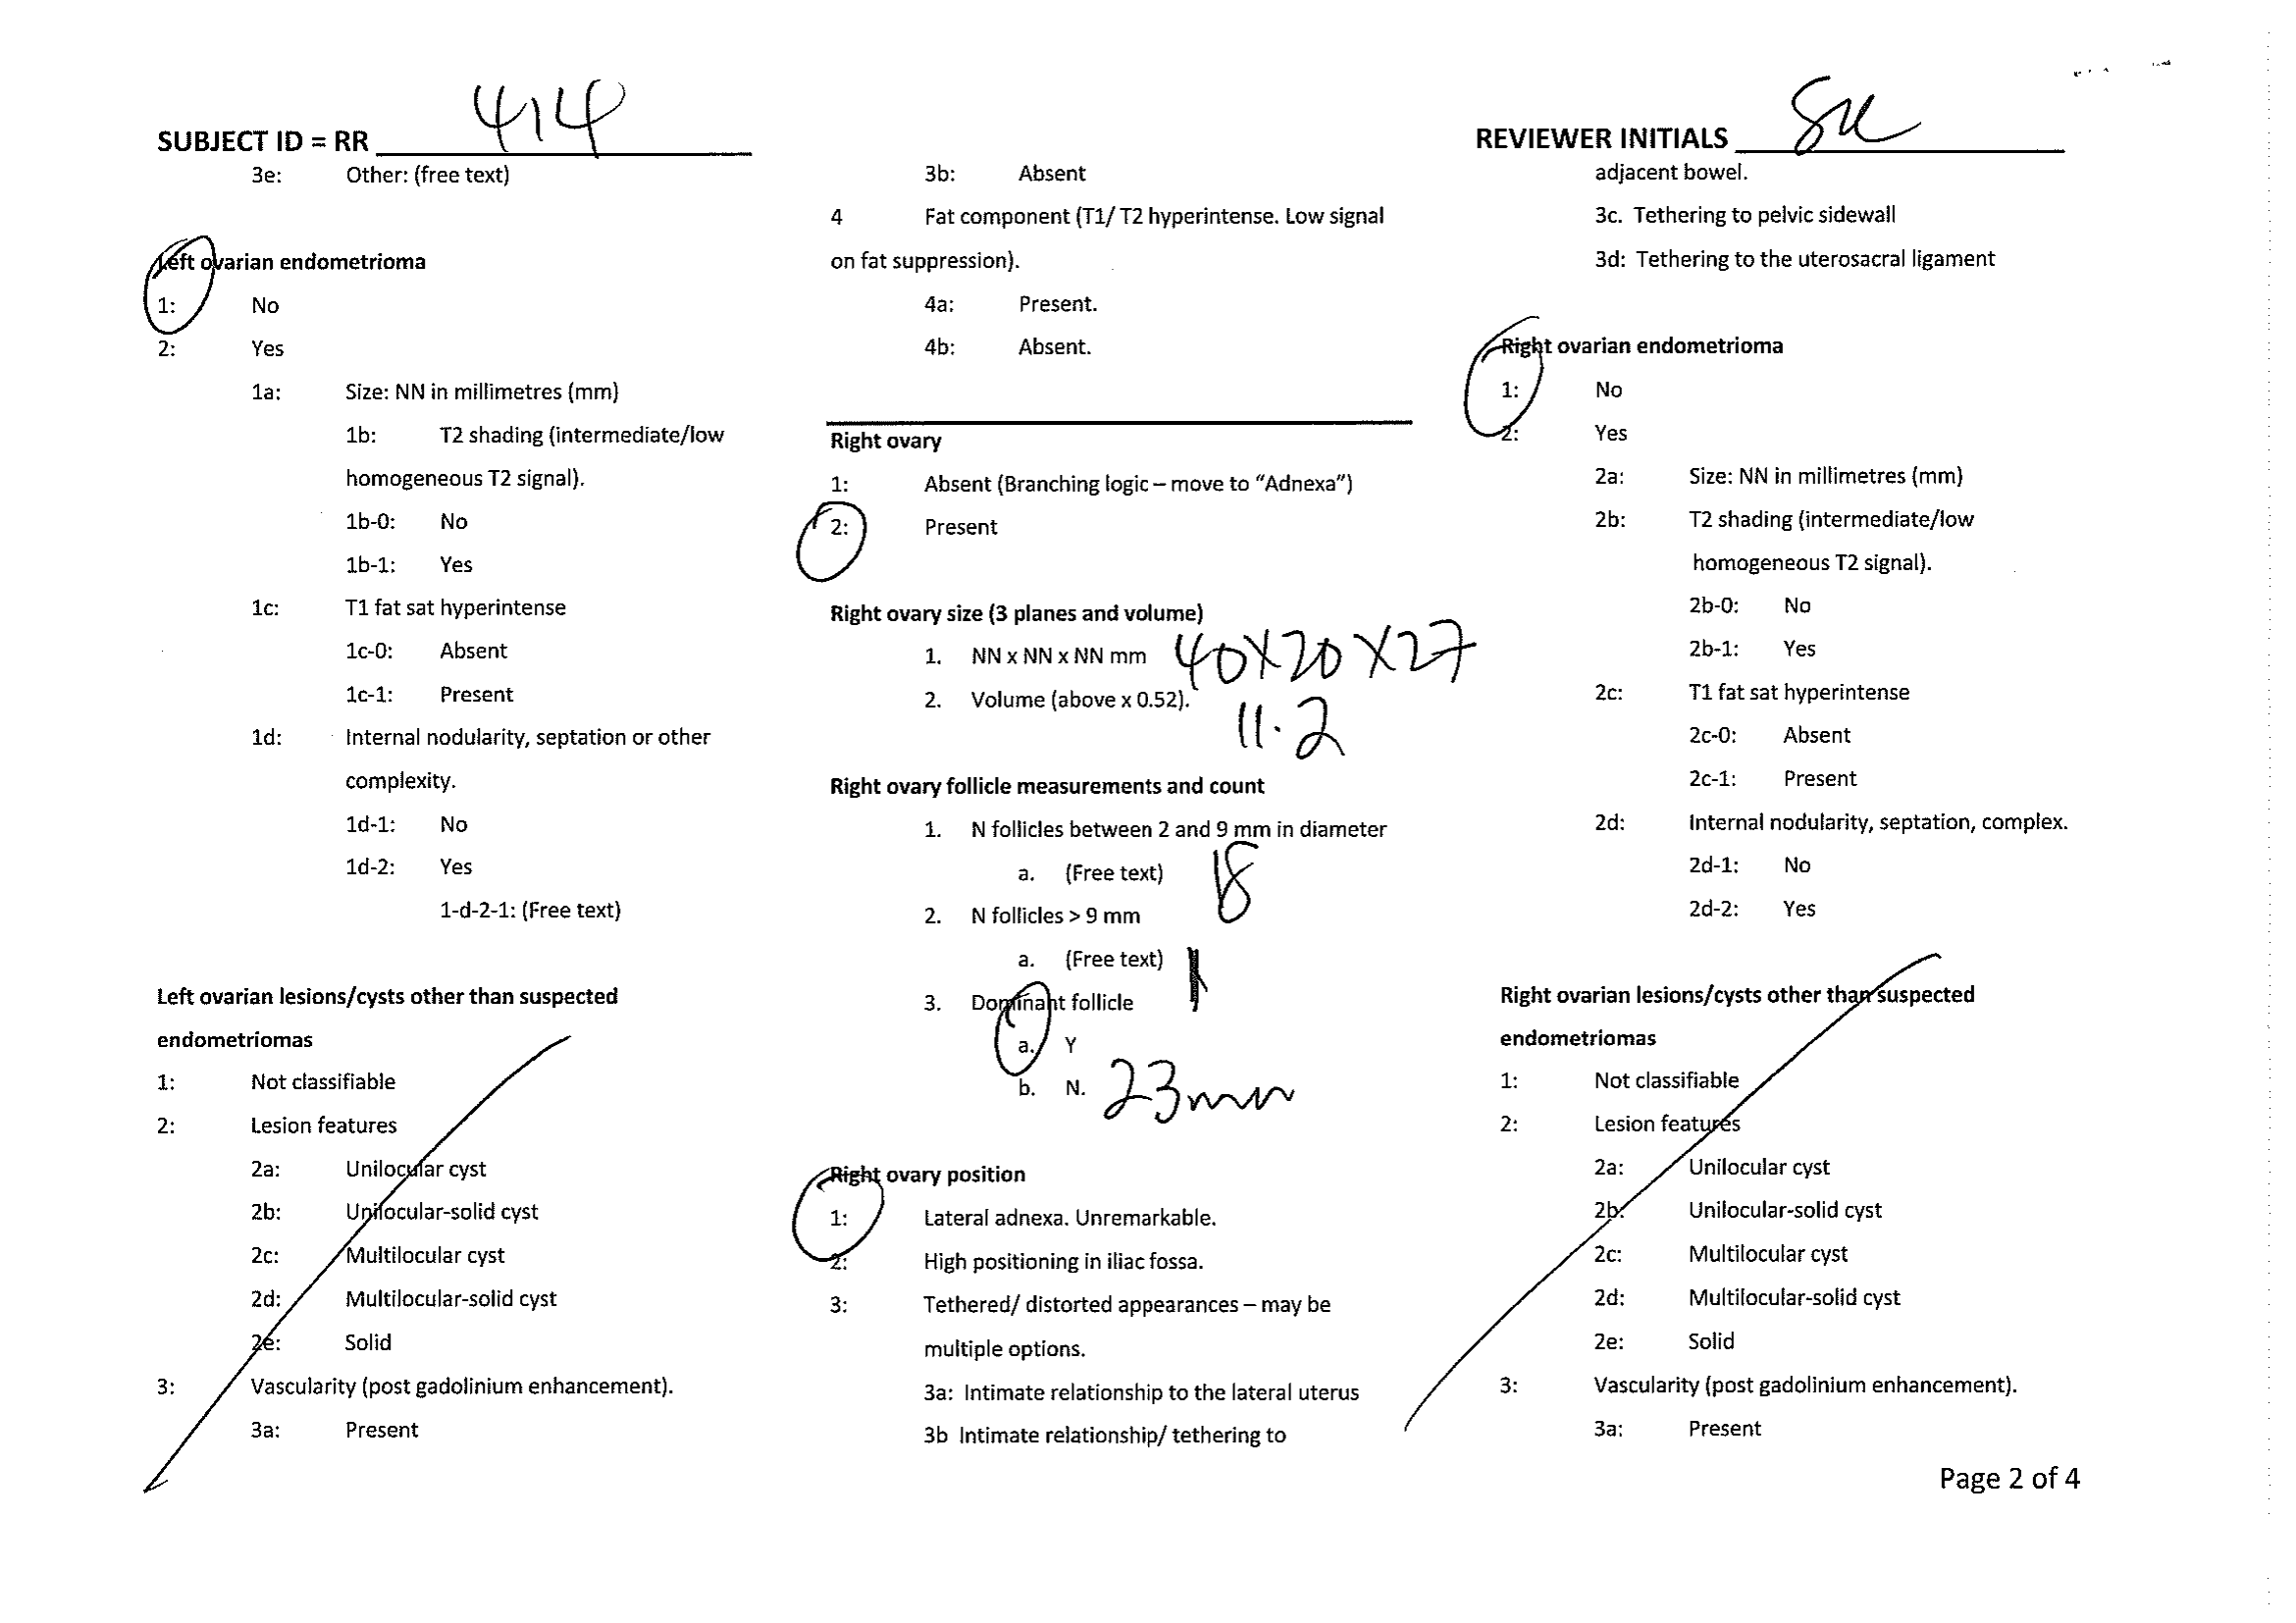 SUBJECT ID = RR 414
REVIEWER INITIALS
3e: Other: (free text)
Left ovarian endometrioma
1: No
2: Yes
1a: Size: NN in millimetres (mm)
1b: T2 shading (intermediate/low
homogeneous T2 signal).
1b-0: No
1b-1: Yes
1c: T1 fat sat hyperintense
1c-0: Absent
1c-1: Present
1d: Internal nodularity, septation or other
complexity.
1d-1: No
1d-2: Yes
1-d-2-1: (Free text)
Left ovarian lesions/cysts other than suspected
endometriomas
1: Not classifiable
2: Lesion features
2a: Unilocular cyst
2b: Unilocular-solid cyst
2c: Multilocular cyst
2d: Multilocular-solid cyst
2e: Solid
3: Vascularity (post gadolinium enhancement).
3a: Present
3b: Absent
4 Fat component (T1/ T2 hyperintense. Low signal
on fat suppression).
4a: Present.
4b: Absent.
Right ovary
1: Absent (Branching logic – move to “Adnexa”)
2: Present
Right ovary size (3 planes and volume)
1. NN x NN x NN mm 40X20X27
2. Volume (above x 0.52). 11.2
Right ovary follicle measurements and count
1. N follicles between 2 and 9 mm in diameter
a. (Free text) 18
2. N follicles > 9 mm
a. (Free text) 1
3. Dominant follicle
a. Y
b. N. 23mm
Right ovary position
1: Lateral adnexa. Unremarkable.
2: High positioning in iliac fossa.
3: Tethered/ distorted appearances – may be
multiple options.
3a: Intimate relationship to the lateral uterus
3b Intimate relationship/ tethering to
adjacent bowel.
3c. Tethering to pelvic sidewall
3d: Tethering to the uterosacral ligament
Right ovarian endometrioma
1: No
2: Yes
2a: Size: NN in millimetres (mm)
2b: T2 shading (intermediate/low
homogeneous T2 signal).
2b-0: No
2b-1: Yes
2c: T1 fat sat hyperintense
2c-0: Absent
2c-1: Present
2d: Internal nodularity, septation, complex.
2d-1: No
2d-2: Yes
Right ovarian lesions/cysts other than suspected
endometriomas
1: Not classifiable
2: Lesion features
2a: Unilocular cyst
2b: Unilocular-solid cyst
2c: Multilocular cyst
2d: Multilocular-solid cyst
2e: Solid
3: Vascularity (post gadolinium enhancement).
3a: Present
Page 2 of 4